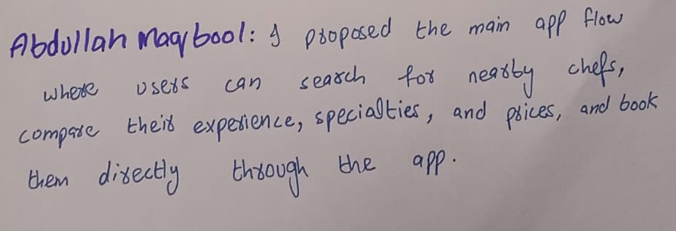 Abdullah Maqbool: I proposed the main app flow
where users can search for nearby chefs,
compare their experience, specialties, and prices, and book
them directly through the app.